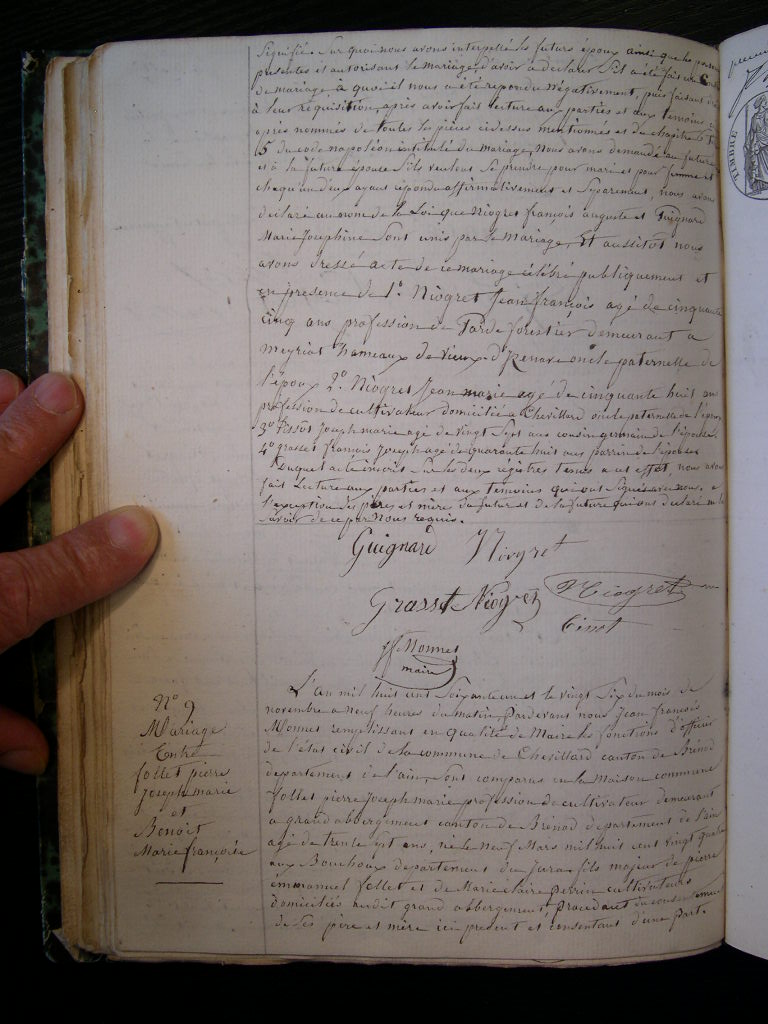 Signifiée. Sur quoi nous avons interpellé les futurs époux ainsi que les
présentes et autorisant le mariage, d'avoir a déclarer S'il a été fait un
de mariage, à quoi il nous a été répondu négativement, puis faisant
à leur réquisition, après avoir fait lecture aux parties et aux temoins
après nommés de toutes les pièces cidessus mentionnés et du chapitre 6
(5 du code napoléon intitulé du mariage, Nous avons demandé au futur
et à la future épouse S'ils veulent Se prendre pour mari et pour femme et
chaqu'un d'eux ayant répondu affirmativement et Séparement, nous avons
déclaré au nom de la Loi que Niogret françois auguste et Guignard
Marie Josephine Sont unis par le Mariage, Et aussitôt nous
avons dressé acte de ce mariage célébré publiquement et
en présence de 1° Niogret Jean françois agé de cinquante
cinq ans profession de Garde forestier demeurant a
Meyriat hameaux de Vieux-d'Izenave oncle paternelle de
l'époux 2° Niogret Jean marie agé de cinquante huit ans
profession de cultivateur domicilié a Chevillard oncle paternelle de l'époux
3° Tissot Joseph marie agé de vingt Sept ans cousin germain de l'épouse.
4° grasset françois Joseph agé de quarante huit ans parrin de l'épouse
Duquel acte inscrit Sur les deux régistres tenus a cet effet nous avons
fait Lecture aux parties et aux témoins qui ont Signés avec nous a
l'exception des pères et mère du futur et de la future qui ont déclaré ne le
Savoir de ce par Nous requis.
Guignard Niogret
Grasset Niogret Niogret
Tissot
Monnet
maire
N° 9
Mariage
Entre
follet pierre
Joseph marie
et
Benoit
Marie françoise
L'an mil huit cent Soixante un et le vingt Six du mois de
novembre a neuf heures du matin, Pardevant nous Jean françois
Monnet remplissant en qualité de Maire les fonctions d'officier
de l'état civil de la commune de Chevillard canton de Brénod
departement de l'ain, Sont comparus en la Maison commune
follet pierre Joseph marie profession de cultivateur demeurant
a grand abbergement canton de Brénod département de l'ain
agé de trente Sept ans, né le neuf Mars mil huit cent vingt quatre
aux Bouchoux departement du Jura fils majeur de pierre
émmanuel follet et de Marie claire perrin cultivateurs
domiciliés audit grand abbergement, procedant du consentement
de Ses père et mère ici présent et consentant d'une part.
TIMBRE